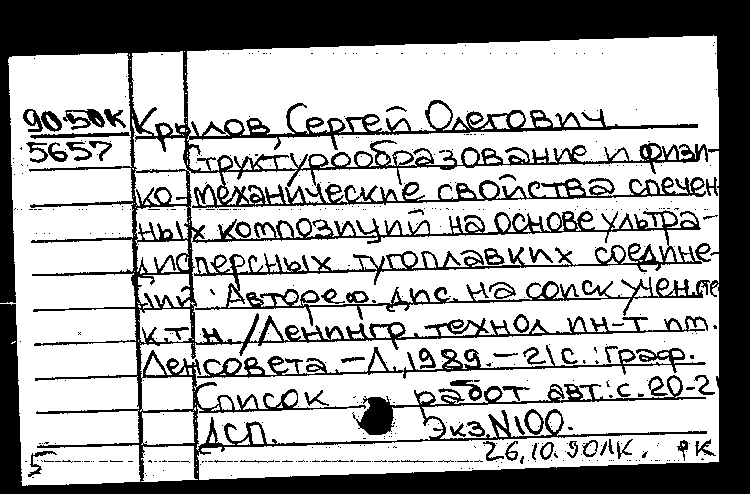 90-50К Крылов, Сергей Олегович
5657 Структурообразование и физи-
ко-механические свойства спечен
ных композиций на основе ультра-
дисперсных тугоплавких соедине-
ний : Автореф. дис. на соиск учен.
к.т.н. /Ленингр. технол. ин-т им.
Ленсовета. - Л., 1989. - 21 с. : граф.
Список работ авт.: с. 20-2
ДСП. Экз.N100.
26.10.90 ЛК. ЯК
5